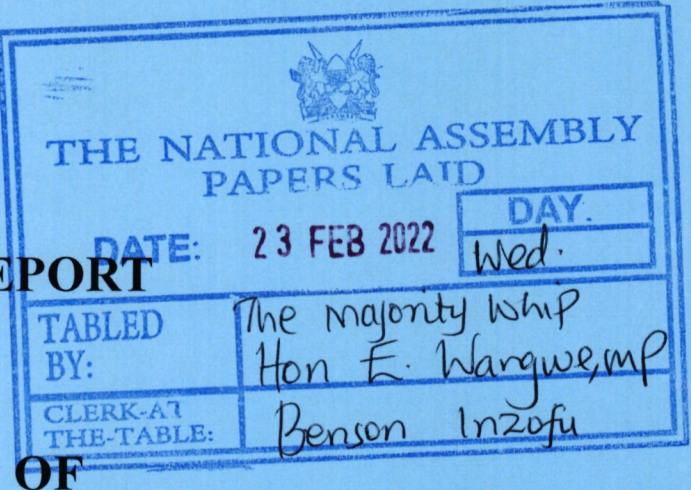 THE NATIONAL ASSEMBLY
PAPERS LAID
DATE: 23 FEB 2022
DAY.
Wed.
EPORT
TABLED BY:
The Majority Whip
Hon E. Wangwe, MP
CLERK-AT THE-TABLE:
Benson Inzofu
OF